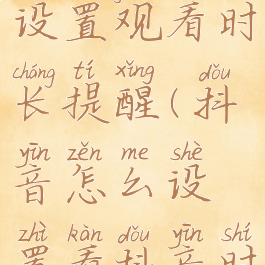 设置观看时
cháng tí xǐng dǒu
长提醒(抖
yīn zěn me shè
音怎么设
zhì kàn dǒu yīn shí
置看抖音时